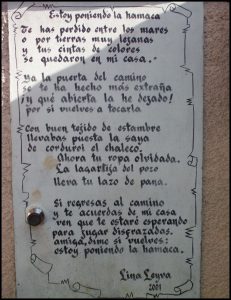 Estoy poniendo la hamaca
Te has perdido entre los mares
o por tierras muy lejanas
y tus cintas de colores
se quedaron en mi casa.
Ya la puerta del camino
se te ha hecho más extraña
¡y qué abierta la he dejado!
por si vuelves a tocarla
Con buen tejido de estambre
llevabas puesta la saya
de corduroi el chaleco.
Ahora tu ropa olvidada.
La lagartija del pozo
lleva tu lazo de pana.
Si regresas al camino
y te acuerdas de mi casa
ven que te estaré esperando
para jugar disfrazadas.
amiga, dime si vuelves:
estoy poniendo la hamaca.
Lina Leyva
2001